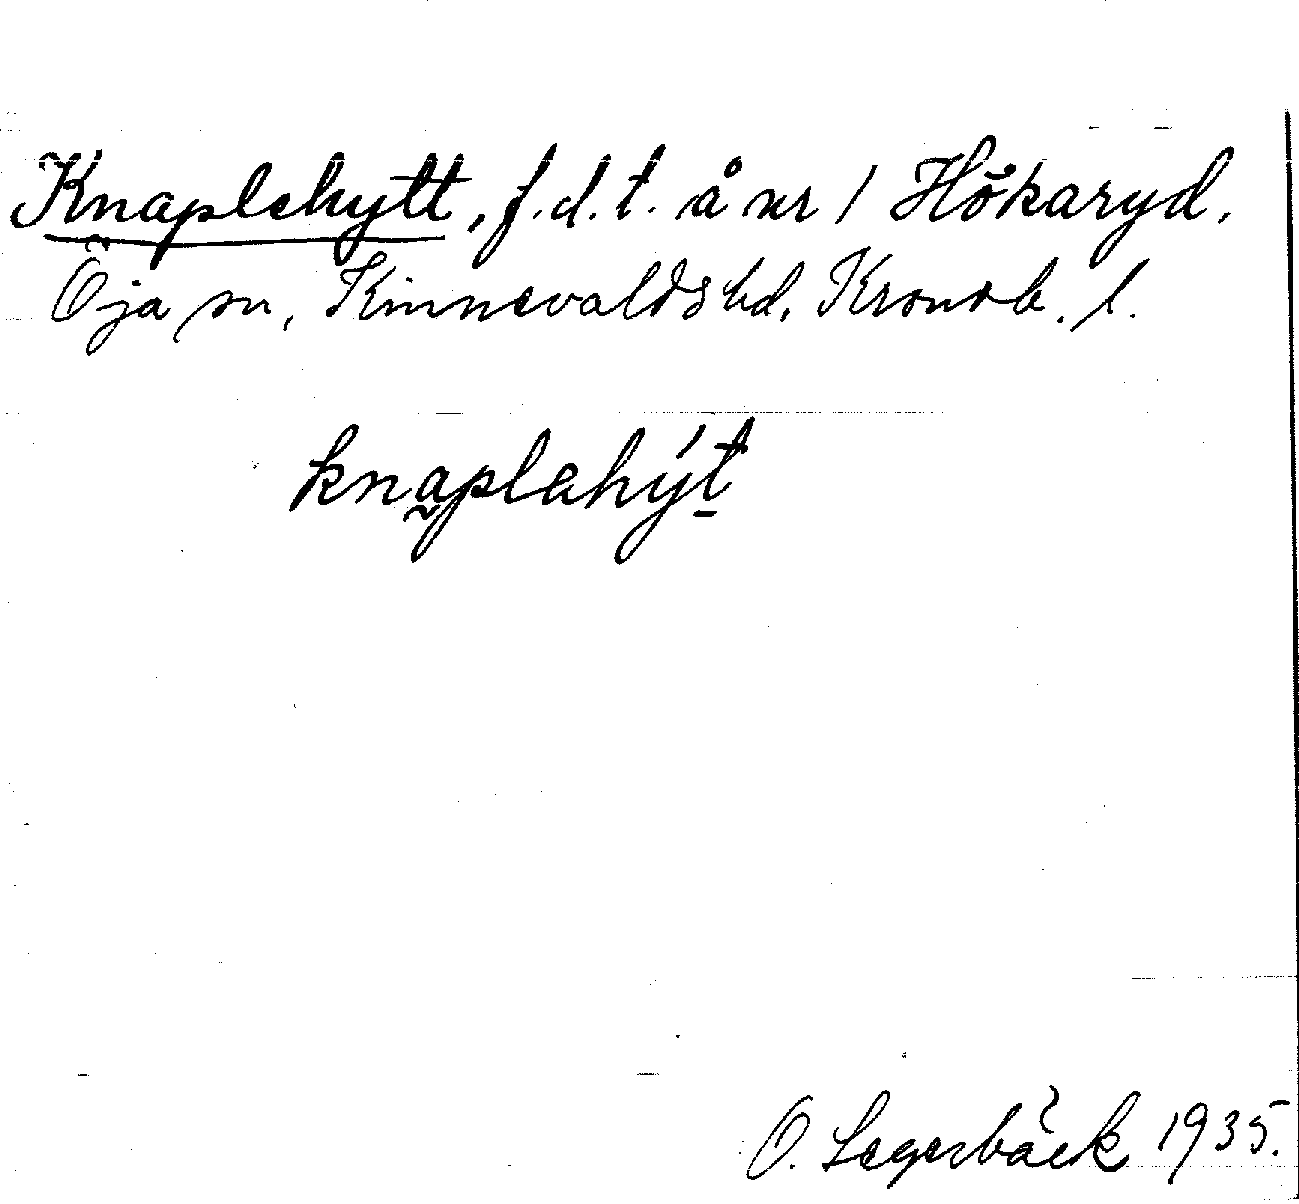 Knaplehytt, f.d.t. å nr 1 Hökaryd,
Öja sn, Kinnevalds hd, Kronob. l.
knaplahýt
O. Lagerbäck 1935.